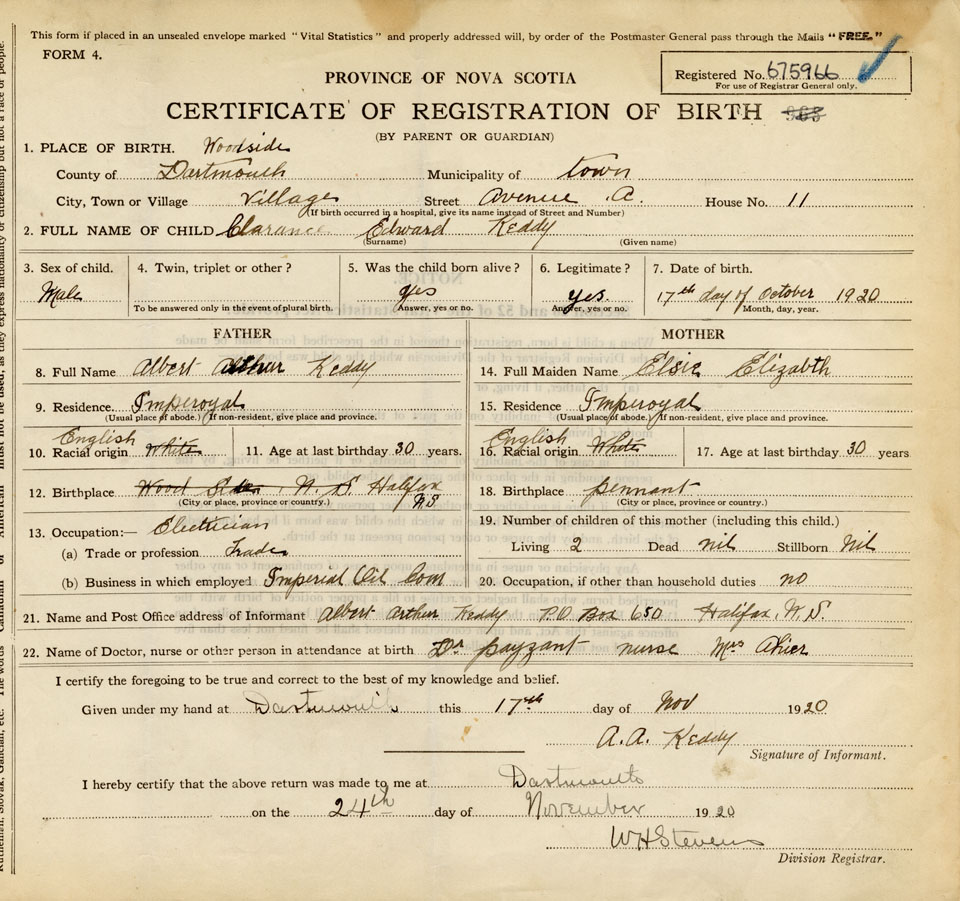 This form if placed in an unsealed envelope marked "Vital Statistics" and properly addressed will, by order of the Postmaster General pass through the Mails "FREE."
FORM 4.
Registered No. 675966
For use of Registrar General only.
PROVINCE OF NOVA SCOTIA
CERTIFICATE OF REGISTRATION OF BIRTH
(BY PARENT OR GUARDIAN)
1. PLACE OF BIRTH. Woodside
County of Dartmouth Municipality of town
City, Town or Village Village Street Avenue A. House No. 11
(If birth occurred in a hospital, give its name instead of Street and Number)
2. FULL NAME OF CHILD Clarance Edward Keddy
(Surname) (Given name)
3. Sex of child. 4. Twin, triplet or other? 5. Was the child born alive? 6. Legitimate? 7. Date of birth.
Male yes yes. 17th day of October 1920
To be answered only in the event of plural birth. Answer, yes or no. Answer, yes or no. Month, day, year.
FATHER MOTHER
8. Full Name Albert Arthur Keddy 14. Full Maiden Name Elsie Elizabth
9. Residence. Imperoyal 15. Residence Imperoyal
(Usual place of abode.) If non-resident, give place and province. (Usual place of abode.) If non-resident, give place and province.
English English
10. Racial origin White 11. Age at last birthday 30 years. 16. Racial origin White 17. Age at last birthday 30 years
12. Birthplace Wood Side, N. S. Halifax N.S 18. Birthplace pennant
(City or place, province or country.) (City or place, province or country.)
13. Occupation:— Electrician 19. Number of children of this mother (including this child.)
(a) Trade or profession Trade Living 2 Dead nil Stillborn Nil
(b) Business in which employed Imperial Oil Com 20. Occupation, if other than household duties no
21. Name and Post Office address of Informant Albert Arthur Keddy P.O Box 650 Halifax, N.S.
22. Name of Doctor, nurse or other person in attendance at birth Dr payzant nurse Mrs
I certify the foregoing to be true and correct to the best of my knowledge and belief.
Given under my hand at Dartmouth this 17th day of Nov 1920
A.A. Keddy
Signature of Informant.
I hereby certify that the above return was made to me at Dartmouth
on the 24th day of November 1920
WHStevens
Division Registrar.